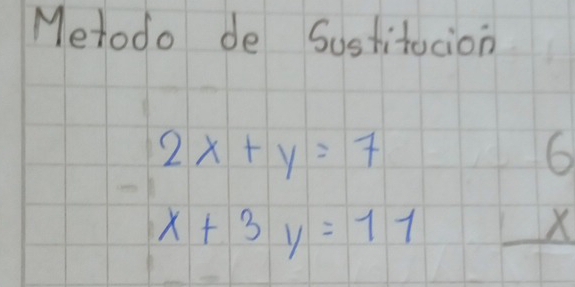 Metodo de Sustitucion
2x + y = 7 6
x + 3y = 11 x